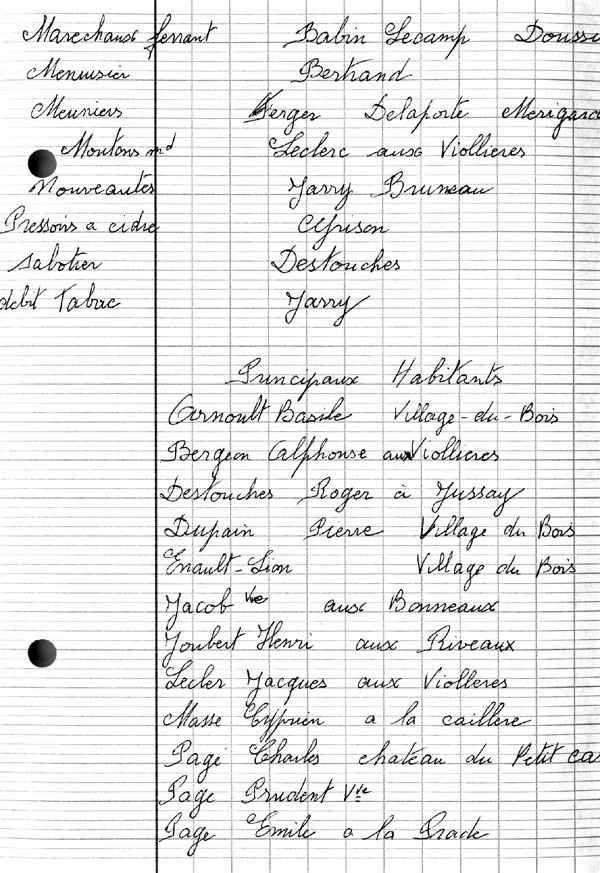 Marechaux ferrant Babin Lecamp Doussi
Menuisier Bertrand
Meuniers Verger Delaporte Merigard
Moutons md Leclerc aux Viollieres
Nouveautes Jarry Bruneau
Pressoirs a cidre Ayrison
Sabotier Destouches
debit Tabac Jarry
Principaux Habitants
Arnoult Basile Village-du-Bois
Bergeon Alphonse aux Viollieres
Destouches Roger à Jussay
Dupain Pierre Village du Bois
Enault-Lion Village du Bois
Jacob Vve aux Bonneaux
Joubert Henri aux Riveaux
Lecler Jacques aux Violleres
Masse Cyprien a la caillere
Page Charles chateau du Petit cas
Page Prudent Vve
Page Emile a la Prade